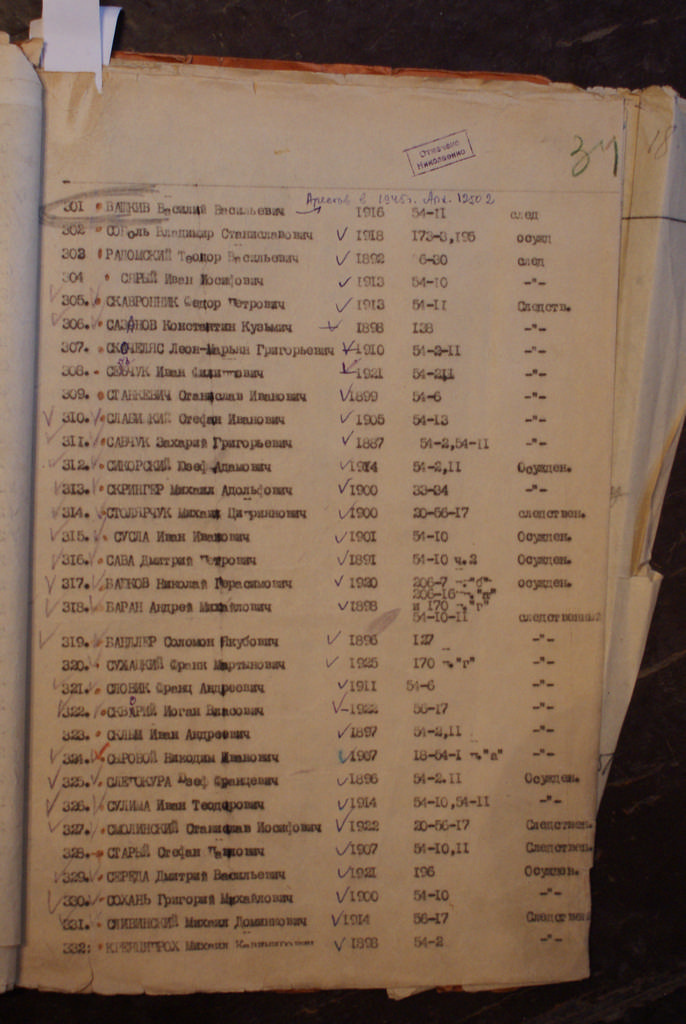 Отпечатано
Николаенко
34
18
Арестов в 1945г. Арх. 12502
301 ВАПКИВ Василий Васильевич 1916 54-11 след
302 СОРОЛЬ Владимир Станиславович 1918 173-3,195 осужд
303 РАДОМСКИЙ Теодор Васильевич 1892 6-30 след
304 СЕРЫЙ Иван Иосифович 1913 54-10 -"-
305. СКАВРОННИК Федор Петрович 1913 54-11 Следств.
306. САЗАНОВ Константин Кузьмич 1898 138 -"-
307. СКОЧЕЛЯС Леон-Марьян Григорьевич 1910 54-2-11 -"-
308. Иван Филиппович 1921 54-211 -"-
309. СТАНКЕВИЧ Станислав Иванович 1899 54-6 -"-
310. СЛАВИЦКИЙ Стефан Иванович 1905 54-13 -"-
311. САВЧУК Захарий Григорьевич 1887 54-2,54-11 -"-
312. СИКОРСКИЙ Юзеф Адамович 1914 54-2,11 Осужден.
313. СКРИНГЕР Михаил Адольфович 1900 33-34 -"-
314. СТОЛЯРЧУК Михаил 1900 20-56-17 следствен.
315. СУСЛА Иван Иванович 1901 54-10 Осужден.
316. САВА Дмитрий Петрович 1891 54-10 ч.2 Осужден.
317. ВАПКОВ Николай Герасимович 1920 206-7 "б" осужден.
206-16 "а"
318. БАРАН Андрей Михайлович 1898 и 170 "г"
54-10-11 следственный
319. Соломон Якубович 1896 127 -"-
320. СУХАЦКИЙ Франк Мартынович 1925 170 "г" -"-
321. СЛОВИК Франц Андреович 1911 54-6 -"-
322. СКВАРИЙ Йоган Власович 1922 56-17 -"-
323. СКЛЬМ Иван Андреевич 1897 54-2,11 -"-
324. СЫРОВОЙ Никодим Иванович 1907 18-54-1 "а" -"-
325. СЛЕПОКУРА Юзеф Францевич 1896 54-2.11 Осужден.
326. СУЛИМА Иван Теодорович 1914 54-10,54-11 -"-
327. СМОЛИНСКИЙ Станислав Иосифович 1922 20-56-17 Следствен.
328. СТАРЫЙ Стефан Павлович 1907 54-10,11 Следствен.
329. СЕРЕДА Дмитрий Васильевич 1921 196 Осужден.
330. СОХАНЬ Григорий Михайлович 1900 54-10 -"-
331. СЛИВИНСКИЙ Михаил Доминкович 1914 56-17 Следствен
332: Михаил 1898 54-2 -"-